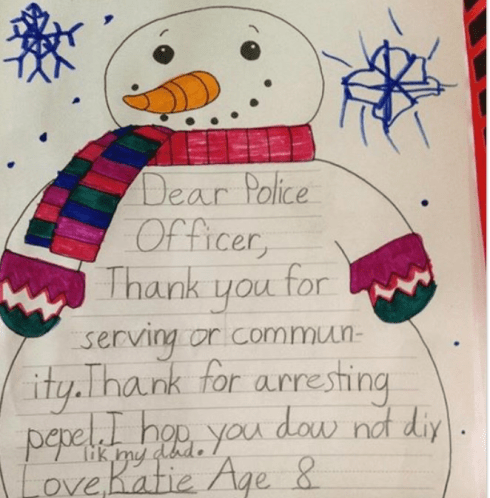 Dear Police
Officer,
Thank you for
serving or commun-
ity. Thank for arresting
pepel. I hop you dow not diy
lik my dad.
Love, Katie Age 8